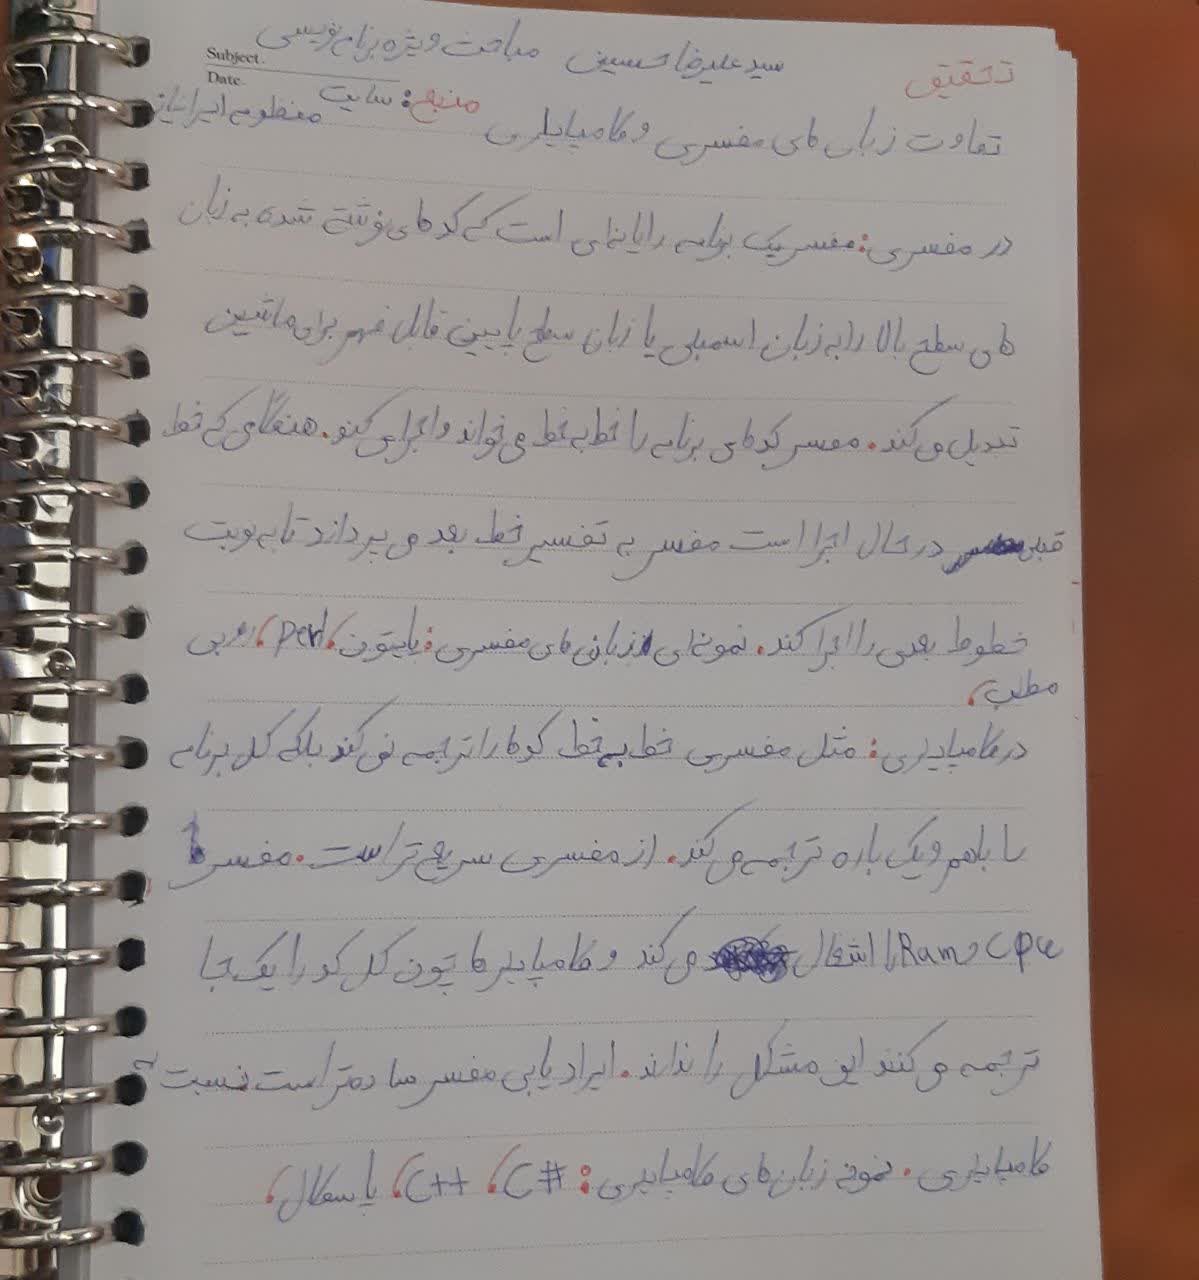 تحقیق سید علیرضا حسینی مباحث ویژه برنامه نویسی
Subject.
Date.
تفاوت زبان های مفسری و کامپایلری منبع: سایت منظومه ایرانیان
در مفسری: مفسر یک برنامه رایانه‌ای است که کد های نوشته شده به زبان
های سطح بالا را به زبان اسمبلی یا زبان سطح پایین قابل فهم برای ماشین
تبدیل می کند. مفسر کد های برنامه را خط به خط می خواند و اجرا می کند. هنگامی که خط
قبلی در حال اجرا است مفسر به تفسیر خط بعد می پردازد تا به نوبت
خطوط بعدی را اجرا کند. نمونه‌ای از زبان های مفسری: پایتون، perl، روبی
مطلب،
در کامپایلری: مثل مفسری خط به خط کد ها را ترجمه نمی کند بلکه کل برنامه
را باهم و یک باره ترجمه می کند. از مفسری سریع تر است. مفسر
Cpu و Ram را اشغال می کند و کامپایلر ها چون کل کد را یک جا
ترجمه می کنند این مشکل را ندارند. ایراد یابی مفسر ساده تر است نسبت به
کامپایلری. نمونه زبان های کامپایلری: C#، C++، پاسکال،